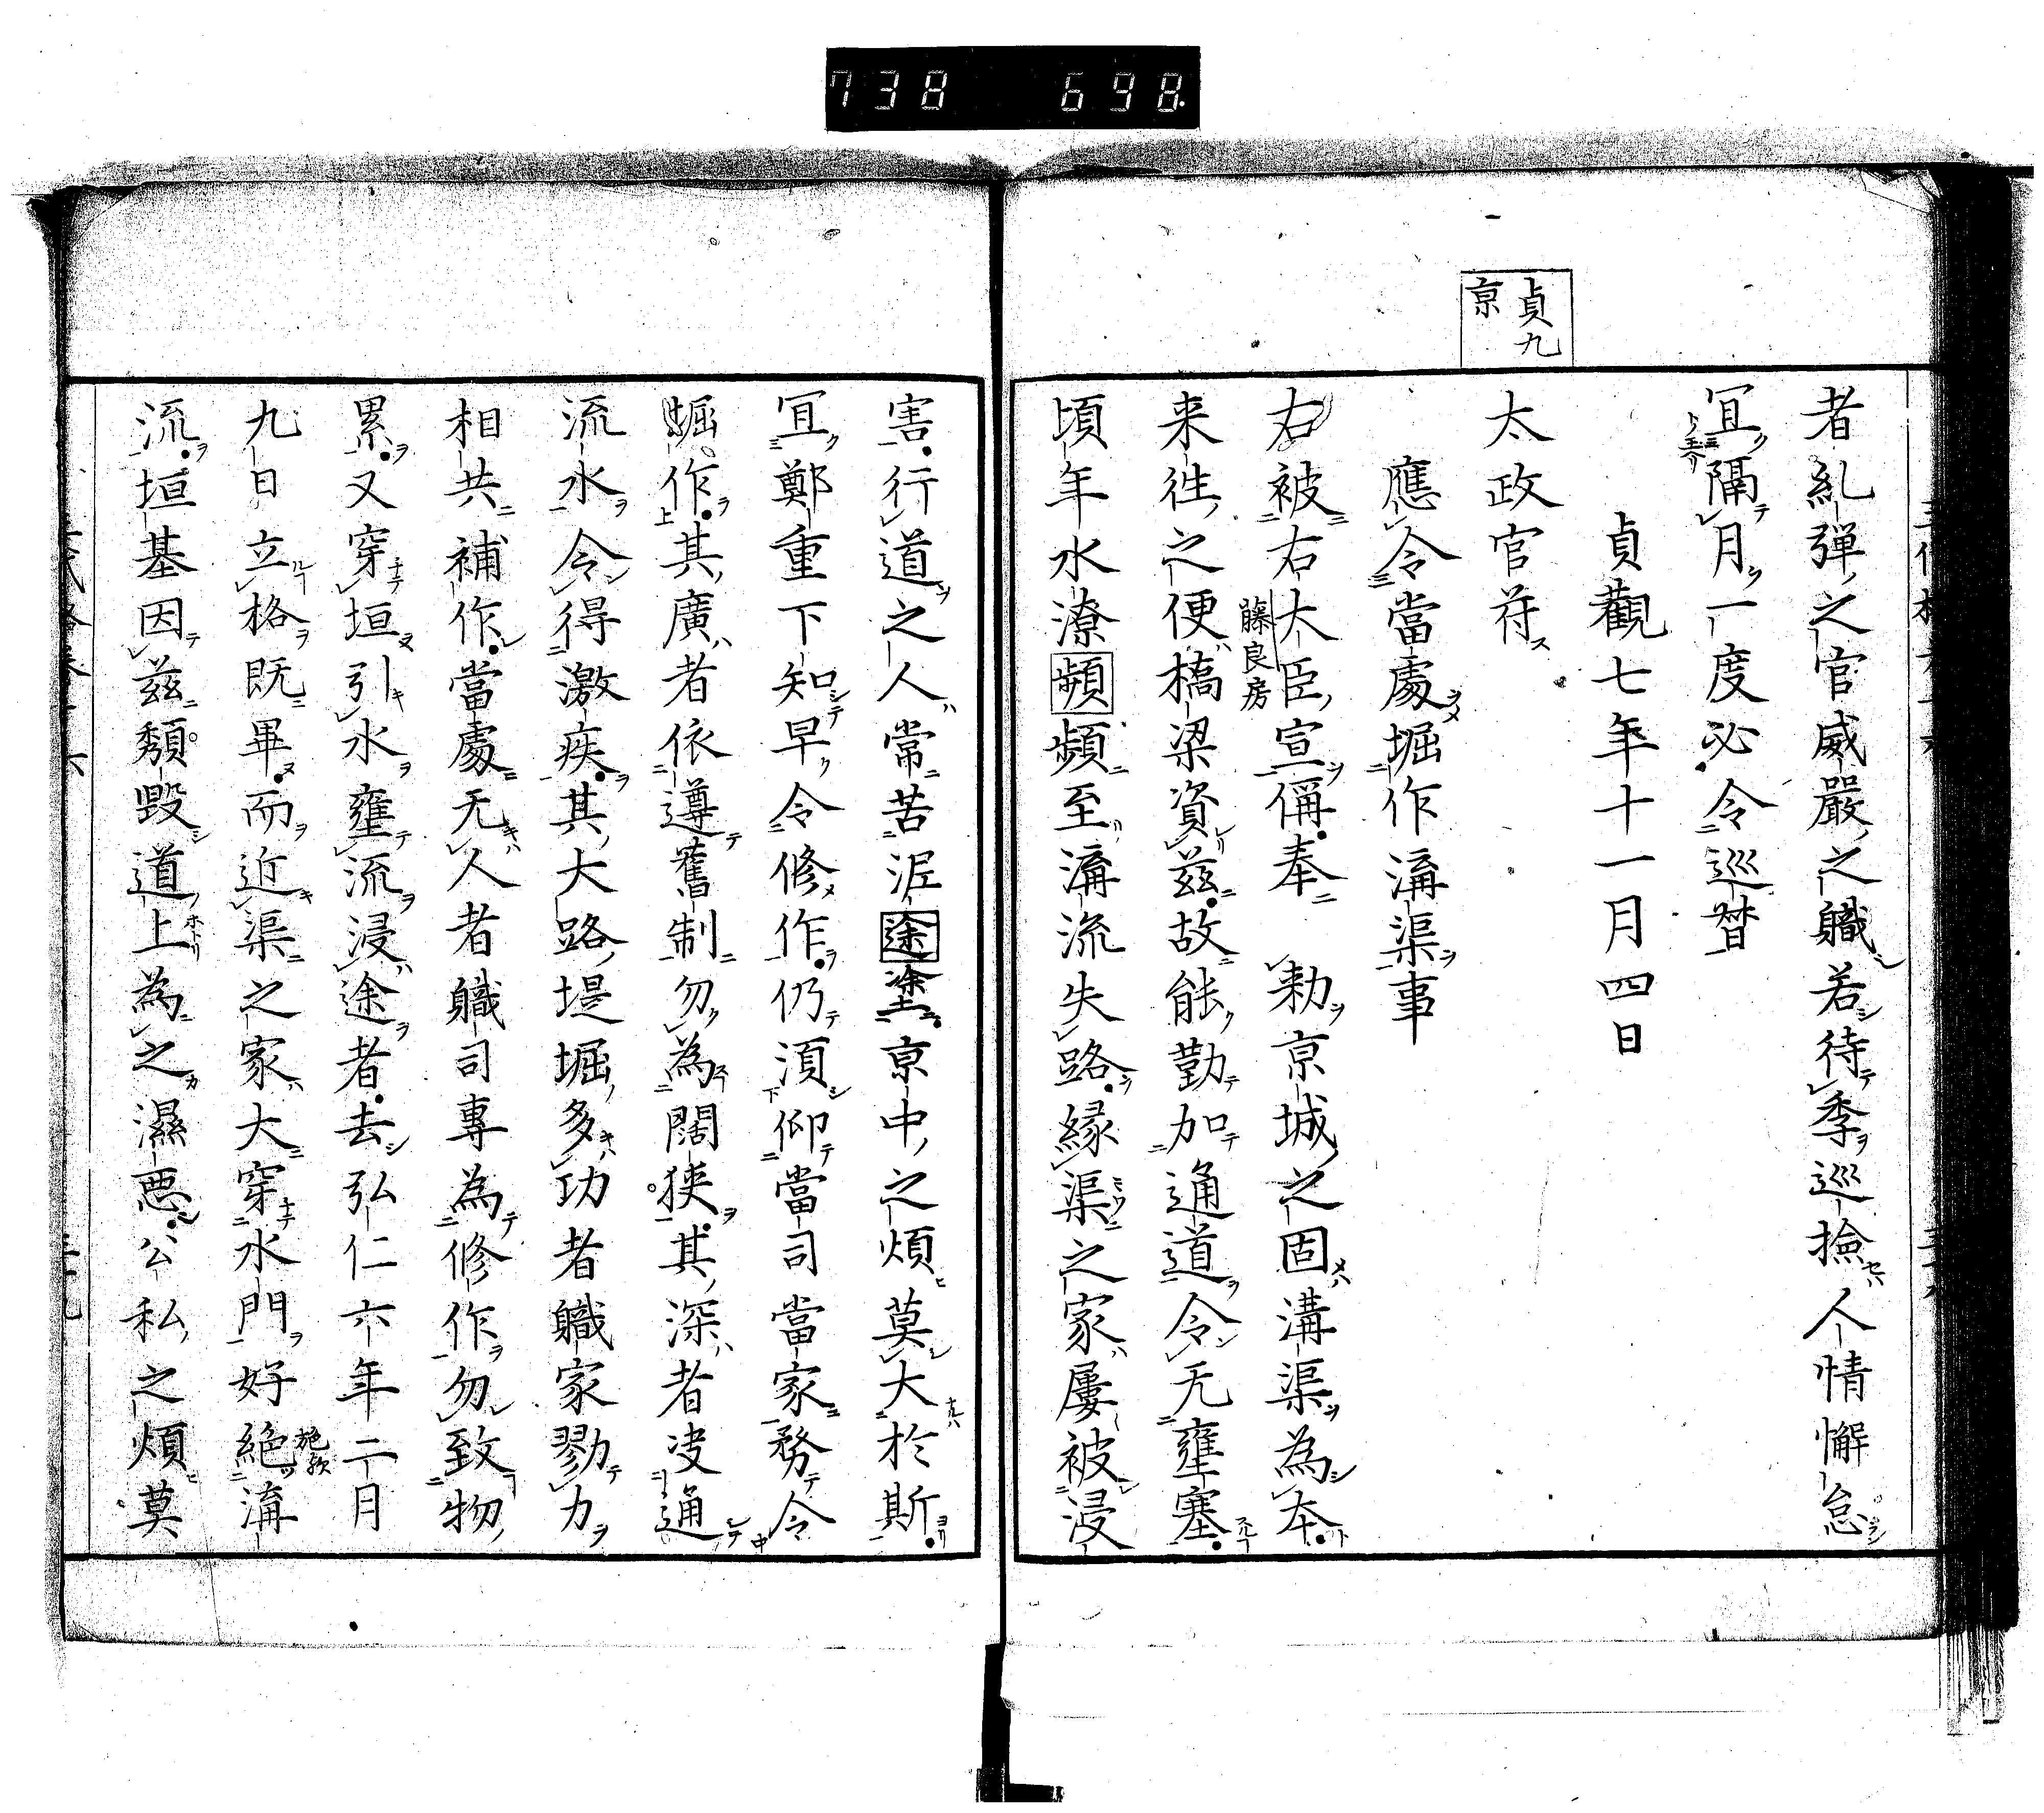 738 698.
貞九
京
者糺弾之官威嚴之職若待季巡撿人情懈怠
冝隔月一度必令巡督
貞觀七年十一月四日
太政官符
應令當處堀作溝渠事
右被右大臣宣偁奉 勅京城之固溝渠為本
藤良房
来徃之便橋梁資兹故能勤加通道令无壅塞
頃年水潦頻頻至溝流失路縁渠之家屢被浸
害行道之人常苦泥途塗京中之煩莫大於斯
冝鄭重下知早令修作仍湏仰當司當家務令
堀作其廣者依遵舊制勿為闊狭其深者决通
流水令得激疾其大路堤堀多功者職家勠力
相共補作當處无人者職司專為修作勿致物
累又穿垣引水壅流浸途者去弘仁六年二月
九日立格既畢而近渠之家大穿水門好絶溝
施歟
流垣基因兹頽毀道上為之濕悪公私之煩莫